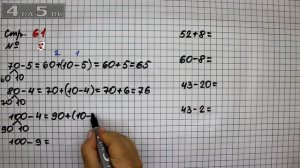 4OU5.RU
Стр. 61
№ 3
2 1
70-5=60+(10-5)=60+5=65
60 10
80-4=70+(10-4)=70+6=76
70 10
100-4=90+(10-
90 10
100-9=
52+8=
60-8=
43-20=
43-2=